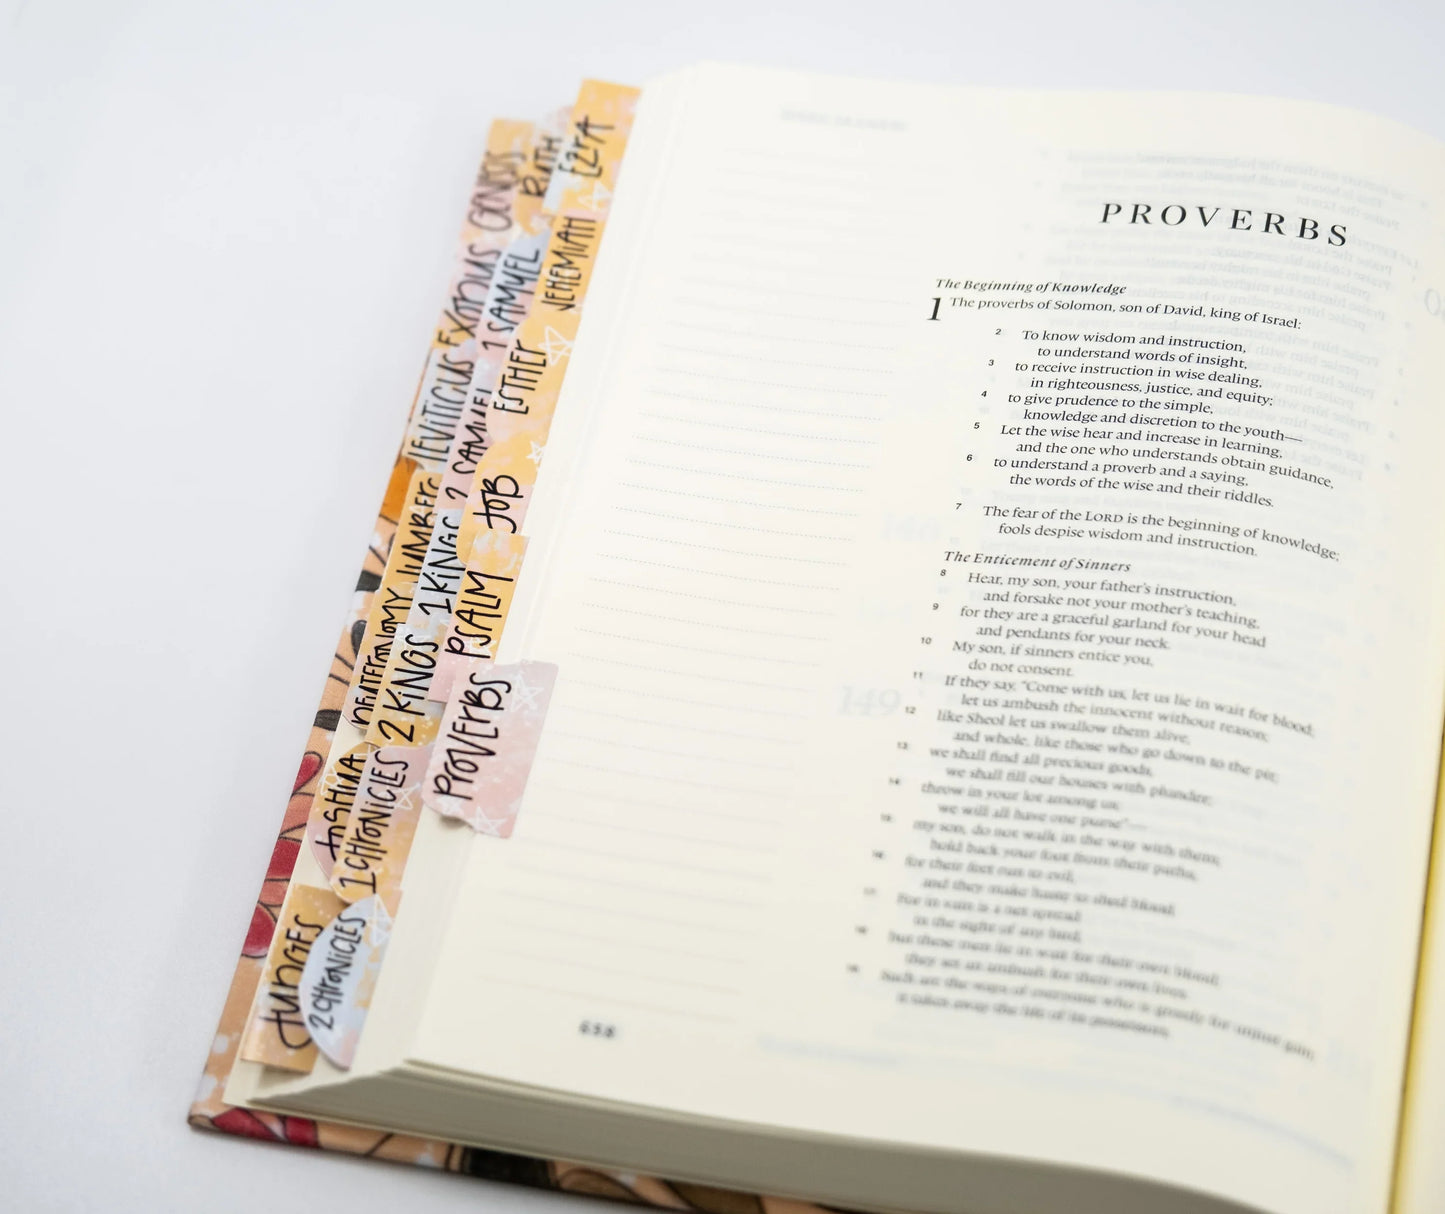 GENESIS
EXODUS
LEVITICUS
NUMBERS
DEUTERONOMY
JOSHUA
JUDGES
RUTH
1 SAMUEL
2 SAMUEL
1 KINGS
2 KINGS
1 CHRONICLES
2 CHRONICLES
EZRA
NEHEMIAH
ESTHER
JOB
PSALM
PROVERBS
PROVERBS
The Beginning of Knowledge
1 The proverbs of Solomon, son of David, king of Israel:
2 To know wisdom and instruction,
to understand words of insight,
3 to receive instruction in wise dealing,
in righteousness, justice, and equity;
4 to give prudence to the simple,
knowledge and discretion to the youth—
5 Let the wise hear and increase in learning,
and the one who understands obtain guidance,
6 to understand a proverb and a saying,
the words of the wise and their riddles.
7 The fear of the LORD is the beginning of knowledge;
fools despise wisdom and instruction.
The Enticement of Sinners
8 Hear, my son, your father's instruction,
and forsake not your mother's teaching,
9 for they are a graceful garland for your head
and pendants for your neck.
10 My son, if sinners entice you,
do not consent.
11 If they say, "Come with us, let us lie in wait for blood;
let us ambush the innocent without reason;
12 like Sheol let us swallow them alive,
and whole, like those who go down to the pit;
13 we shall find all precious goods,
we shall fill our houses with plunder;
14 throw in your lot among us;
we will all have one purse"—
15 my son, do not walk in the way with them;
hold back your foot from their paths,
16 for their feet run to evil,
and they make haste to shed blood.
17 For in vain is a net spread
in the sight of any bird,
18 but these men lie in wait for their own blood;
they set an ambush for their own lives.
19 Such are the ways of everyone who is greedy for unjust gain;
it takes away the life of its possessors.
658
149